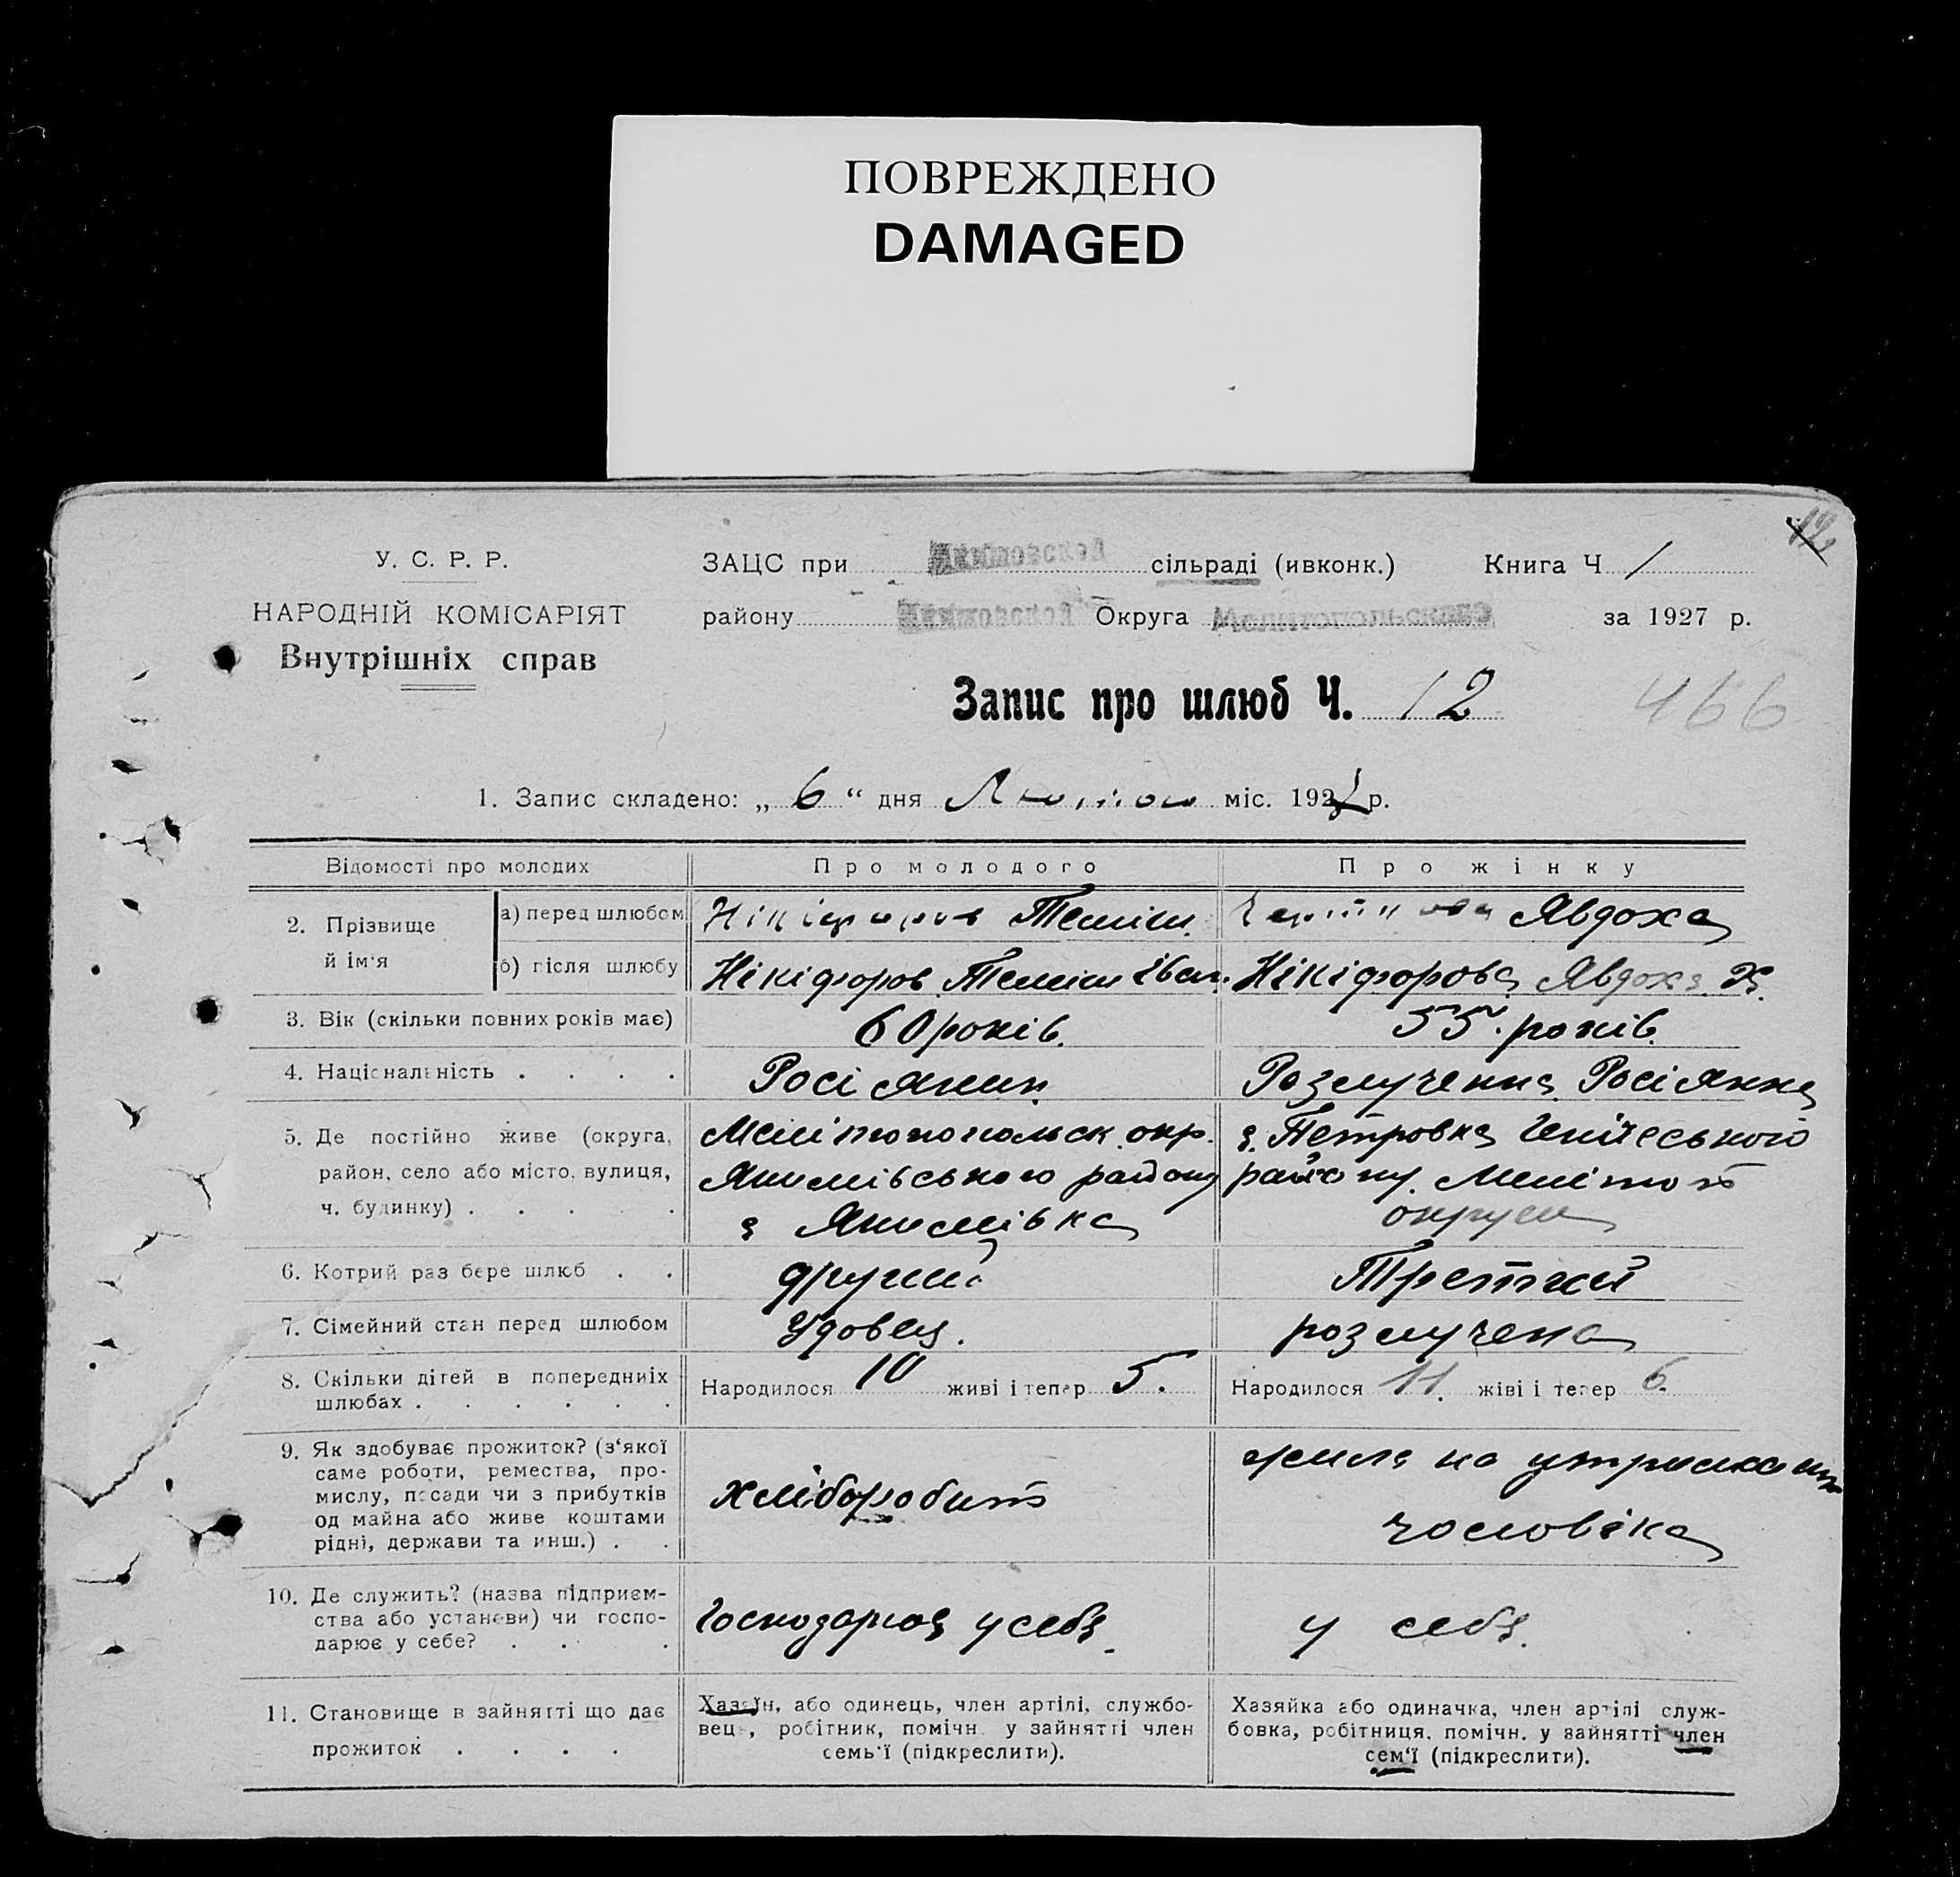 ПОВРЕЖДЕНО
DAMAGED
12
У. С. Р. Р.
НАРОДНІЙ КОМІСАРІЯТ
Внутрішніх справ
ЗАЦС при сільраді (ивконк.) Книга Ч 1
району Округа за 1927 р.
Запис про шлюб Ч. 12
466
1. Запис складено: „ 6 “ дня Лютого міс. 1927 р.
Відомості про молодих Про молодого Про жінку
2. Прізвище й ім'я
а) перед шлюбом Нікіфоров Явдоха
б) після шлюбу Нікіфоров Іван. Нікіфорова Явдоха Х.
3. Вік (скільки повних років має) 60 років. 55 років.
4. Національність . . . . Росіянин Розлучена Росіянка
5. Де постійно живе (округа,
район, село або місто, вулиця,
ч. будинку) . . . . .
Мелітопольськ. окр.
Якимівського району
с Якимівка
с. Петровка Генічеського
району. Мелітоп
округи
6. Котрий раз бере шлюб . . другий Третий
7. Сімейний стан перед шлюбом Удовец. розлучена
8. Скільки дітей в попередниіх
шлюбах . . . . . .
Народилося 10 живі і тепер 5.
Народилося 11. жіві і тепер 6.
9. Як здобуває прожиток? (з‘якої
саме роботи, ремества, про-
мислу, посади чи з прибутків
од майна або живе коштами
рідні, держави та инш.) . .
хліборобит
жила на утриманні
чоловіка
10. Де служить? (назва підприєм-
ства або установи) чи госпо-
дарює у себе? . . .
Господарює у себе.
у себе.
11. Становище в зайнятті що дає
прожиток . . . .
Хазяїн, або одинець, член артілі, службо-
вець, робітник, помічн. у зайнятті член
семь'ї (підкреслити).
Хазяйка або одиначка, член артілі служ-
бовка, робітниця, помічн. у зайнятті член
сем‘ї (підкреслити).